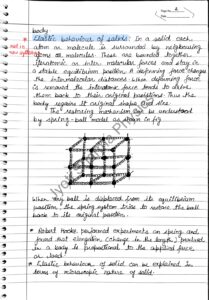 Page No. 2
body
* Elastic behaviour of solids: In a solid each
atom or molecule is surrounded by neighbouring
atoms or molecules. These are bonded together
interatomic or inter molecular forces and stay in
a stable equilibrium position. A deforming force changes
the intermolecular distances. When deforming force
is removed the interatomic force tends to drive
them back to their original positions. Thus the
body regains it original shape and size.
The restoring mechanism can be understood
by spring-ball model as shown in fig
When any ball is displaced from its equilibrium
position, the spring system tries to restore the ball
back to its original position.
Robert Hooke performed experiments on spring and
found that elongation (change in the length) produced
in a body is proportional to the applied force
or load
Elastic behaviour of solid can be explained in
terms of microscopic nature of solid.